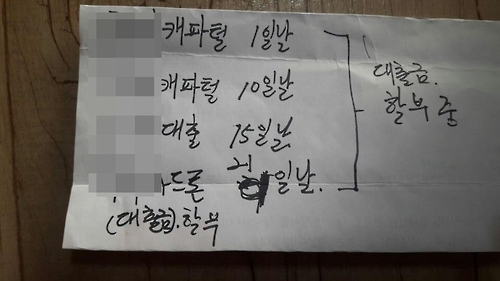 캐피털 1일날
캐피털 10일날
대출 15일날
드론 21일날.
(대출금).할부
대출금.
할부 중